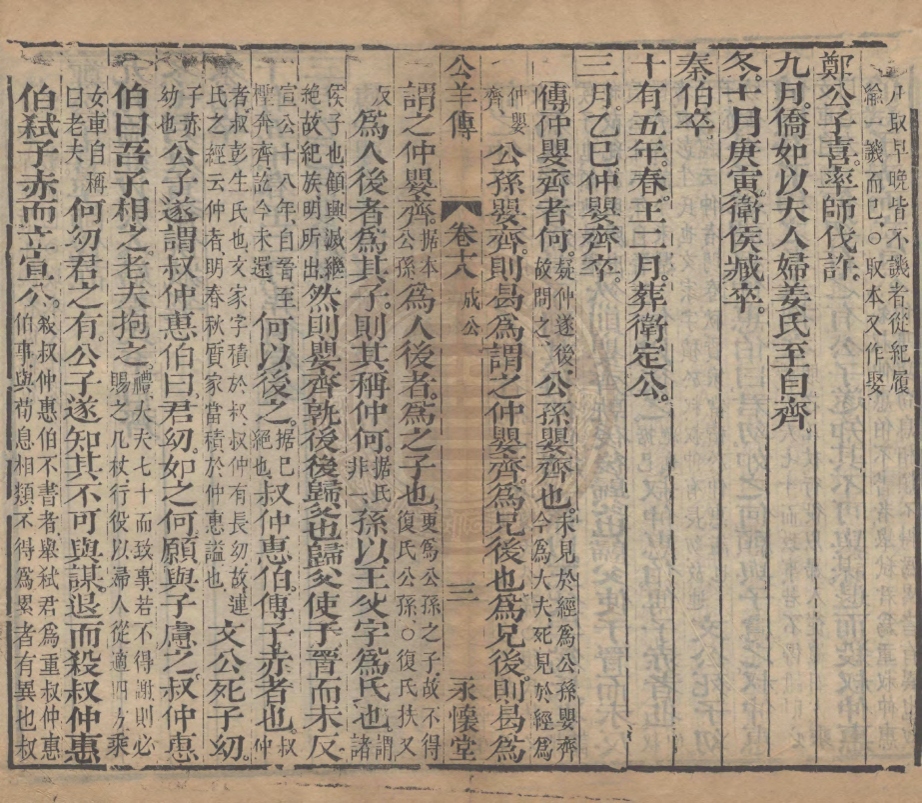 凡取早晚皆不譏者從紀履
緰一譏而已○取本又作娶
鄭公子喜率師伐許
九月僑如以夫人婦姜氏至自齊
冬十月庚寅衛侯臧卒
秦伯卒
十有五年春王二月葬衛定公
三月乙巳仲嬰齊卒
傳仲嬰齊者何疑仲遂後故問之公孫嬰齊也未見於經為公孫嬰齊今為大夫死見於經為
仲嬰齊公孫嬰齊則曷為謂之仲嬰齊為兄後也為兄後則曷為
公羊傳 卷十八 成公 三 永懷堂
謂之仲嬰齊据本公孫為人後者為之子也更為公孫之子故不得復氏公孫○復氏扶又
反為人後者為其子則其稱仲何据氏非一孫以王父字為氏也謂諸
侯子也顧興滅繼絕故紀族明所出然則嬰齊孰後後歸父也歸父使于晉而未反
宣公十八年自晉至檉奔齊訖今未還何以後之据已絕也叔仲惠伯傅子赤者也叔仲
者叔彭生氏也文家字積於叔叔仲有長幼故連氏之經云仲者明春秋質家當積於仲惠諡也文公死子幼
子赤幼也公子遂謂叔仲惠伯曰君幼如之何願與子慮之叔仲惠
伯曰吾子相之老夫抱之禮大夫七十而致事若不得謝則必賜之几杖行役以婦人從適四方乘
女車自稱曰老夫何幼君之有公子遂知其不可與謀退而殺叔仲惠
伯弒子赤而立宣公殺叔仲惠伯不書者舉弒君為重叔仲惠伯事與荀息相類不得為累者有異也叔